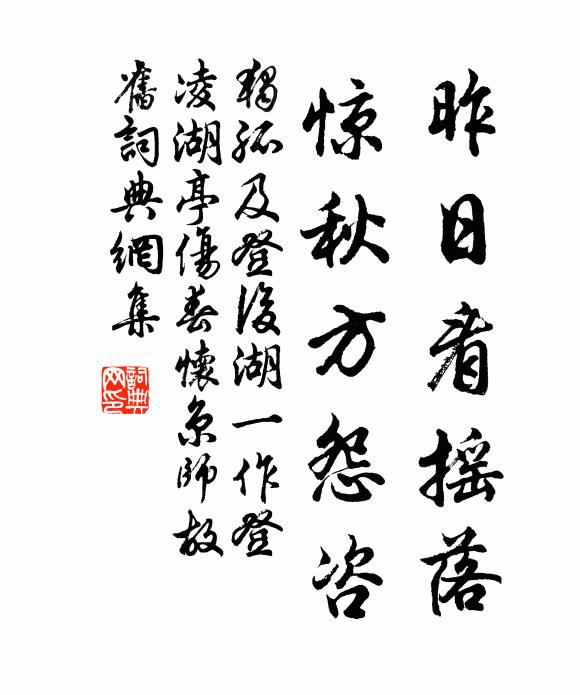 昨日看摇落
惊秋方怨咨
獨孤及登後湖一作登
凌湖亭傷春懷京師故
舊詞典網集
詞典網印